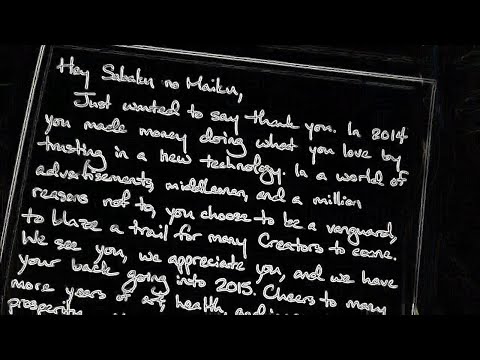 Hey Sabaku no Maiku,
Just wanted to say thank you. In 2014
you made money doing what you love by
trusting in a new technology. In a world of
advertisements, middlemen, and a million
reasons not to, you choose to be a vanguard,
to blaze a trail for many Creators to come.
We see you, we appreciate you, and we have
your back going into 2015. Cheers to many
more years of art, health, and
prosperity